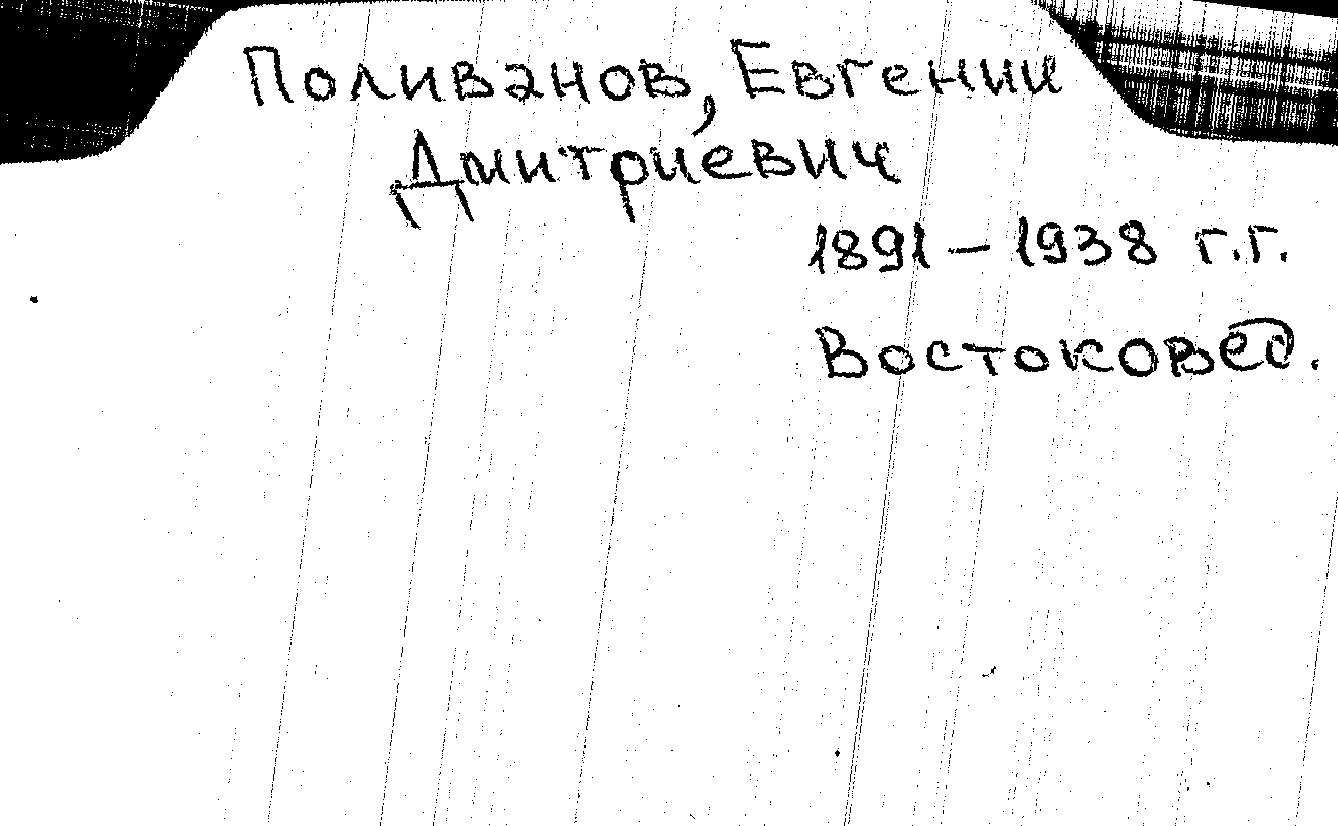 Поливанов, Евгении
Дмитриевич
1891 – 1938 г.г.
Востоковед.